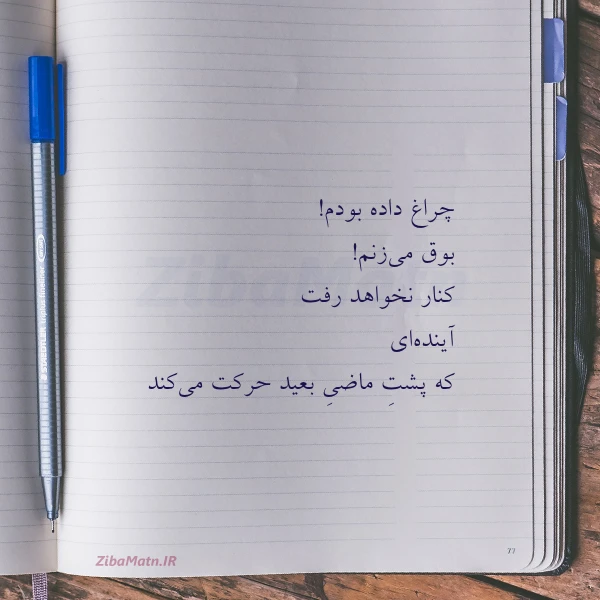 چراغ داده بودم!
بوق می‌زنم!
کنار نخواهد رفت
آینده‌ای
که پشتِ ماضیِ بعید حرکت می‌کند
ZibaMatn.IR
77